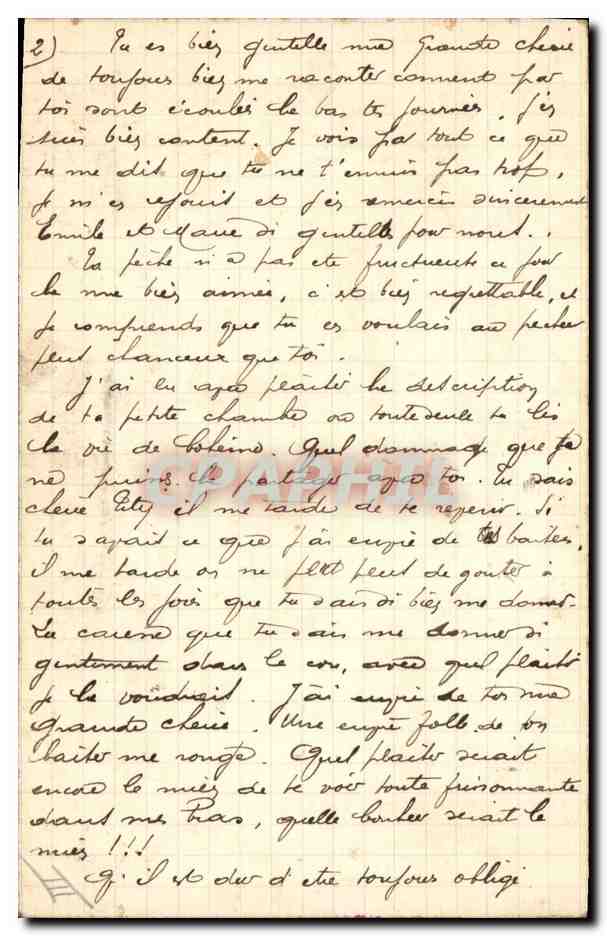 2) Tu es bien gentille ma Grande cherie
de toujours bien me raconter comment par
toi sont écoulées la bas tes journées. J'en
suis bien content. Je vois par tout ce que
tu me dit que tu ne t'ennuis pas trop,
je m'en rejouit et j'en remercie sincerement
Emile et Marie si gentille pour nous..
Ta pêche n'a pas ete fructueuse ce jour
la ma bien aimée, c'est bien regrettable, et
je comprends que tu en voulais au pecheur
plus chanceux que toi.
J'ai lu avec plaisir la description
de ta petite chambre ou toute seule tu lis
la vie de bohème. Quel dommage que je
ne puisse la partager avec toi. Tu sais
cherie il me tarde de te revenir. Si
tu savait ce que j'ai envie de tes baisers,
il me tarde on ne peut plus de gouter à
toutes les joies que tu sais si bien me donner.
La caresse que tu sais me donner si
gentiment dans le cou, avec quel plaisir
je la voudrait. J'ai envie de toi ma
Grande cherie. Une envie folle de ton
baiser me ronge. Quel plaisir serait
encore le mien de te voir toute frissonnante
dans mes bras, quelle bonheur serait le
mien !!!
Qu'il est dur d'etre toujours obligé
III
CPAPHIL